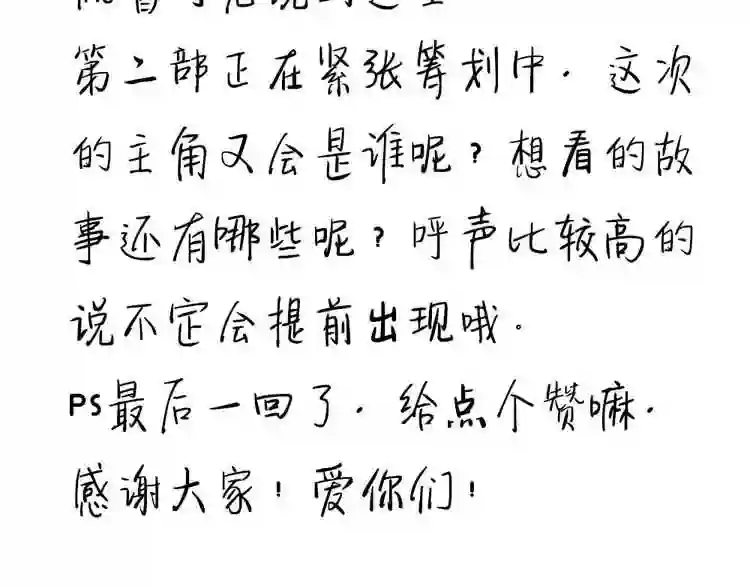 第二部正在紧张筹划中. 这次
的主角又会是谁呢? 想看的故
事还有哪些呢? 呼声比较高的
说不定会提前出现哦.
PS最后一回了. 给点个赞嘛.
感谢大家! 爱你们!